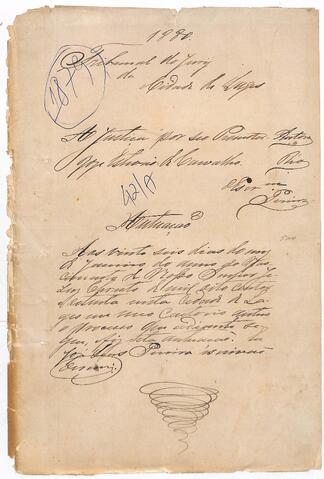 1880.
Tribunal do Jury
da
Cidade de Lages
A Justiça por seo Promotor Autora
José Antonio de Carvalho. Reo
Escrivão
Pereira
42/A
Autuação
Aos vinte seis dias do mez
de Janeiro do anno do Nas
cimento de Nosso Senhor Je
sus Christo de mil oito centos
e oitenta nesta Cidade de La
ges em meu Cartorio autuo
o processo que adiante se
gue, fiz esta autuacao. Eu
José Luis Pereira escrivão